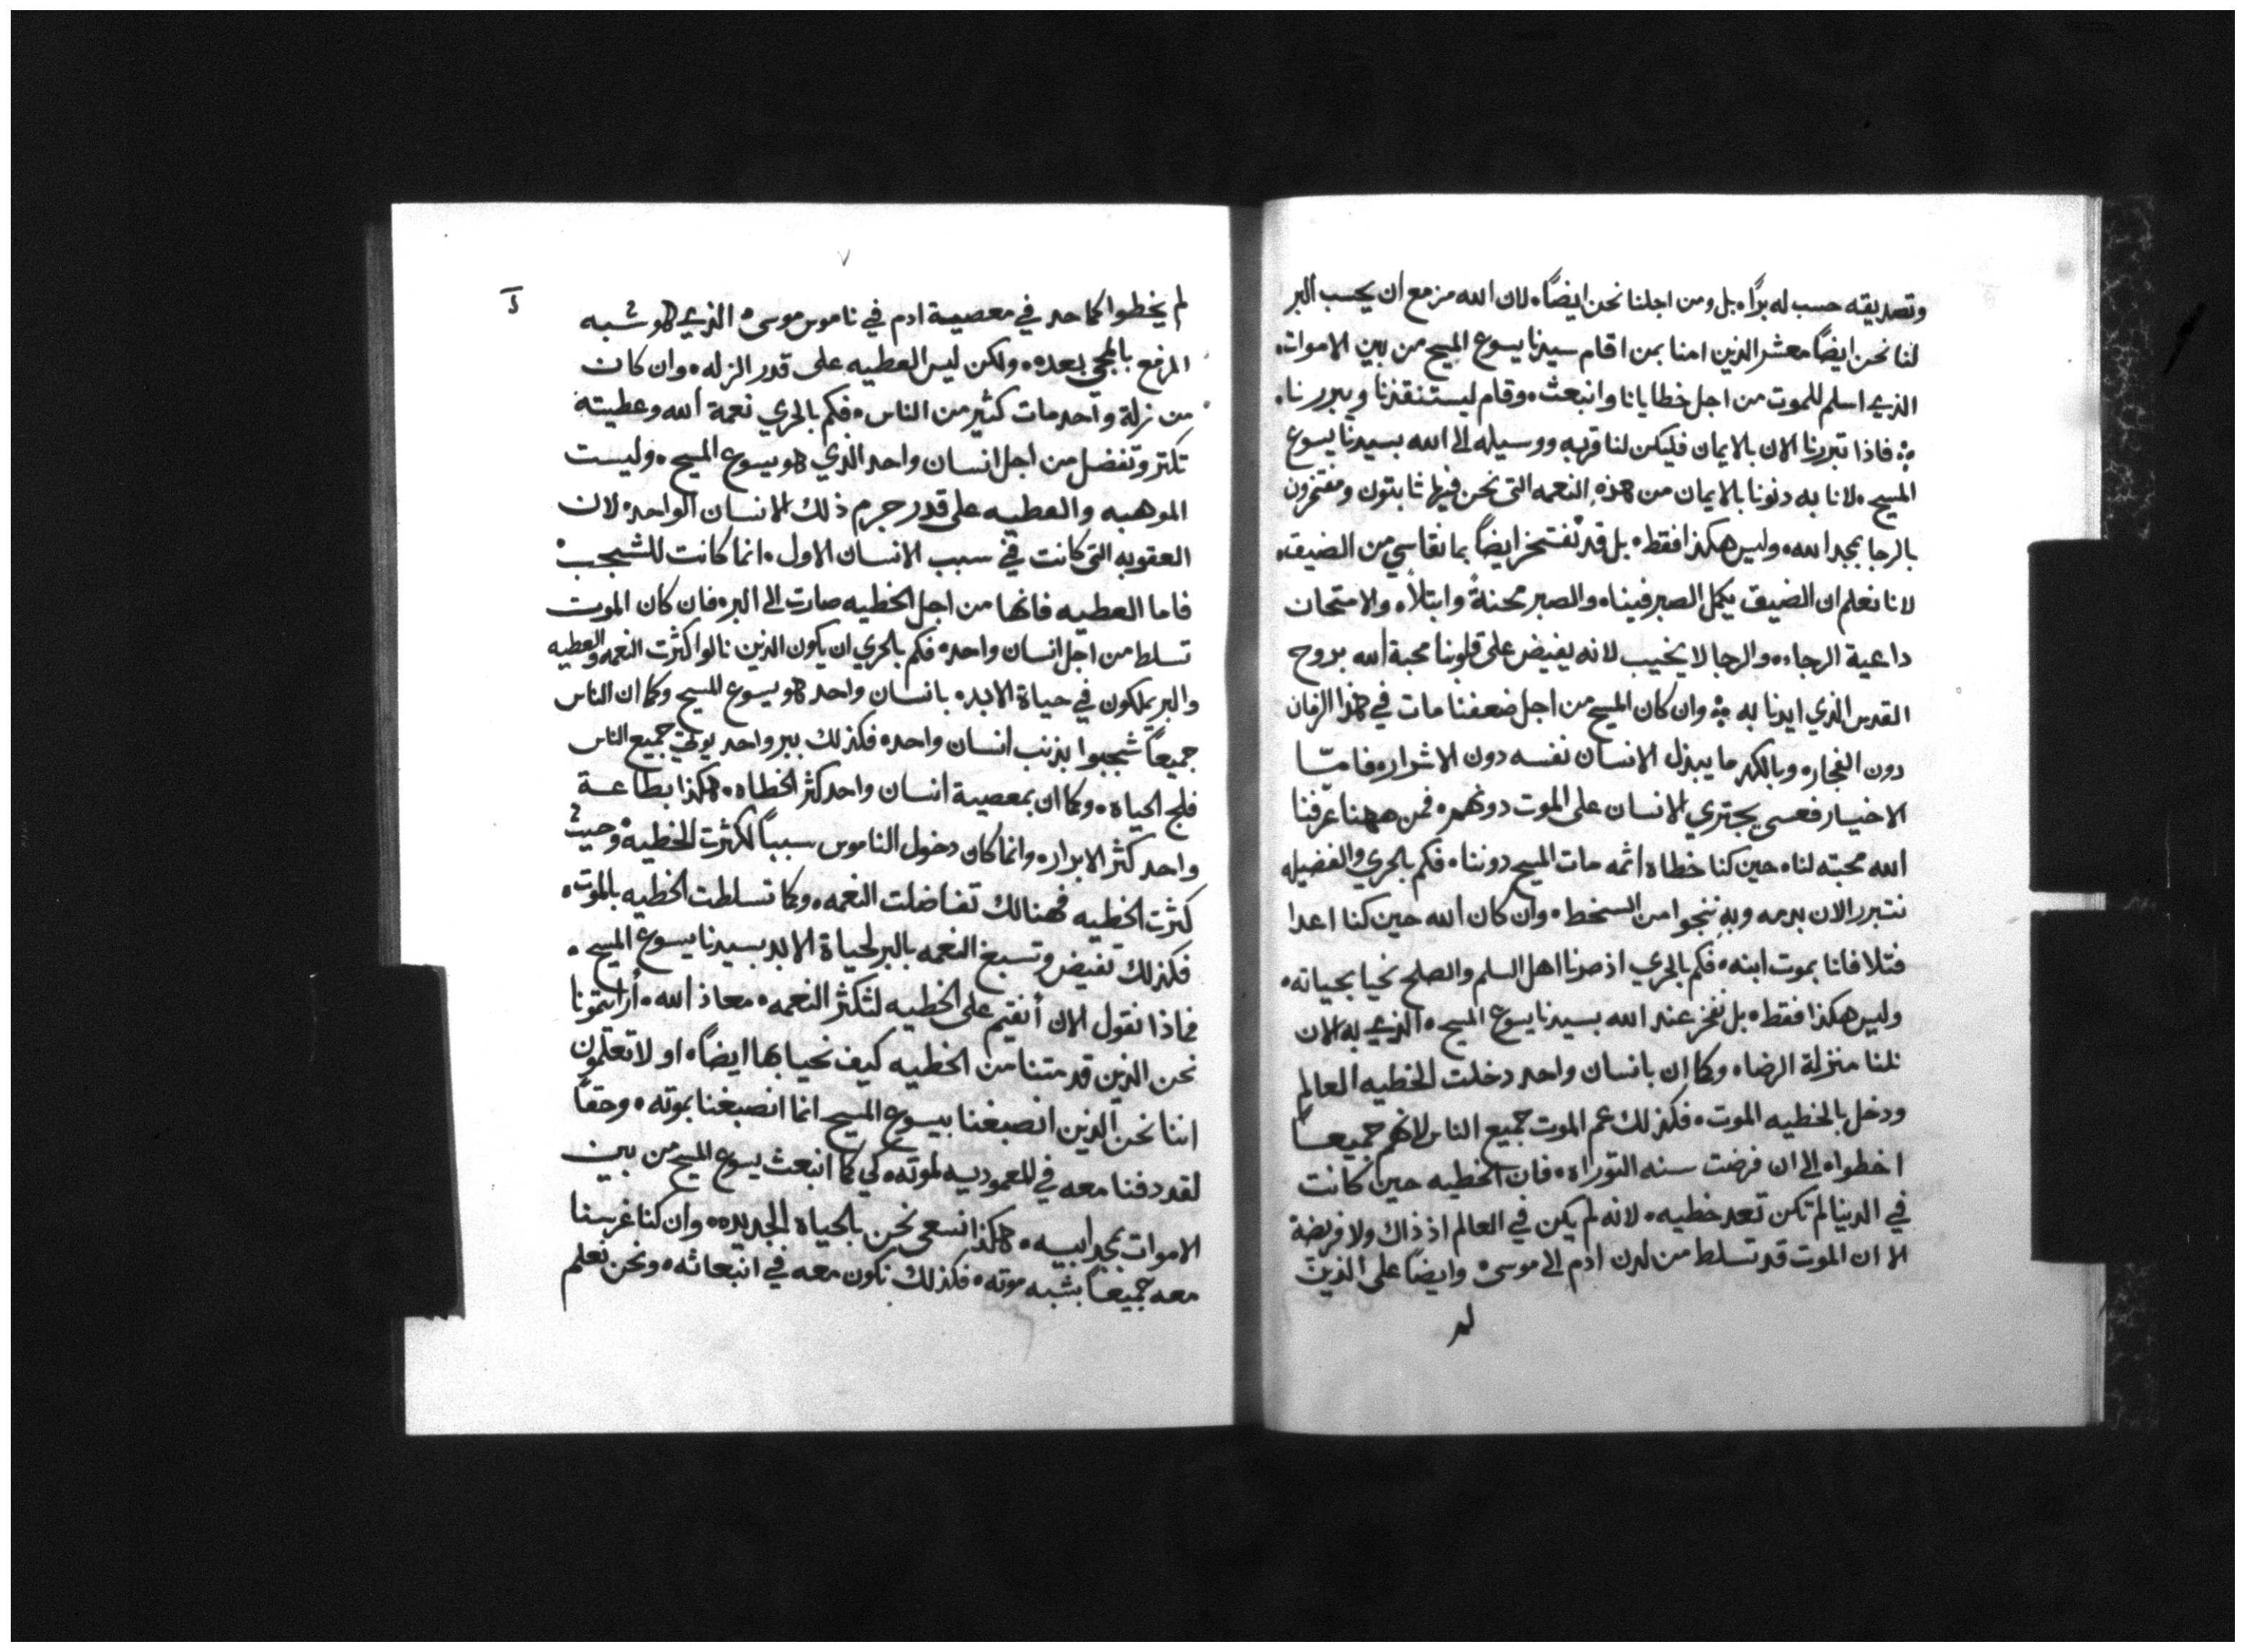 وتصديقه حسب له برًا، بل ومن اجلنا نحن ايضًا، لان الله مزمع ان يحسب البر
لنا نحن ايضًا معشر الذين امنا بمن اقام سيدنا يسوع المسيح من بين الاموات،
الذي اسلم للموت من اجل خطايانا وانبعث، وقام ليستنقذنا ويبررنا،
فاذا تبررنا الان بالايمان فليكن لنا قربه ووسيله الى الله بسيدنا يسوع
المسيح، لانا به دنونا بالايمان من هذه النعمه التى نحن فيها ثابتون ومفتخرون
بالرجا بمجد الله، وليس هكذا فقط، بل قد نفتخر ايضًا بما نقاسي من الضيق،
لانا نعلم ان الضيق يكمل الصبر فينا، والصبر محنةً وابتلاً، والامتحان
داعية الرجاء، والرجا لا يخيب لانه يفيض على قلوبنا محبة الله بروح
القدس الذي ايدنا به وان كان المسيح من اجل ضعفنا مات في هذا الزمان
دون الفجار، وبالكد ما يبذل الانسان نفسه دون الاشرار، فامّا
الاخيار فعسى يجتري الانسان على الموت دونهم، فمن ههنا عرّفنا
الله محبته لنا، حين كنا خطاه اثمه مات المسيح دوننا، فكم بالحري والفضيله
نتبرر الان بدمه وبه ننجوا من السخط، وان كان الله حين كنا اعدا
فتلافانا بموت ابنه، فكم بالحري اذ صرنا اهل السلم والصلح نحيا بحياته،
وليس هكذا فقط، بل نفخر عند الله بسيدنا يسوع المسيح، الذي به الان
نلنا منزلة الرضا، وكما ان بانسان واحد دخلت الخطيه العالم
ودخل بالخطيه الموت، فكذلك عم الموت جميع الناس لانهم جميعاً
اخطوا، الى ان فرضت سنه التوراه، فان الخطيه حين كانت
في الدنيا لم تكن تعد خطيه، لانه لم يكن في العالم اذ ذاك ولا فريضة
الا ان الموت قد تسلط من لدن ادم الى موسى، وايضًا على الذين
لم
٧
لم يخطوا كما حد في معصية ادم في ناموس موسى، الذي هو شبه
المزمع بالمجي بعده، ولكن ليس العطيه على قدر الزله، وان كان
من زلة واحد مات كثير من الناس، فكم بالحري نعمة الله وعطيته
تكثر وتفضل من اجل انسان واحد الذي هو يسوع المسيح، وليست
الموهبه والعطيه على قدر جرم ذلك الانسان الواحد، لان
العقوبه التى كانت في سبب الانسان الاول، انما كانت للشجب،
فاما العطيه فانها من اجل الخطيه صارت الى البر، فان كان الموت
تسلط من اجل انسان واحد، فكم بالحري ان يكون الذين نالوا كثرت النعمه والعطيه
والبر يملكون في حياة الابد، بانسان واحد هو يسوع المسيح وكما ان الناس
جميعاً شجبوا بذنب انسان واحد، فكذلك ببر واحد يوتى جميع الناس
فلج الحياه، وكما ان بمعصية انسان واحد كثر الخطاه، هكذا بطاعة
واحد كثر الابرار، وانما كان دخول الناموس سبباً لكثرت الخطيه، وحيث
كثرت الخطيه فهنالك تفاضلت النعمه، وكما تسلطت الخطيه بالموت،
فكذلك تفيض وتسبغ النعمه بالبر لحياة الابد بسيدنا يسوع المسيح،
فماذا نقول الان أنقيم على الخطيه لتكثر النعمه، معاذ الله، أرايتمونا
نحن الذين قد متنا من الخطيه كيف نحيا بها ايضًا، او لا تعلمون
اننا نحن الذين انصبغنا بيسوع المسيح انما انصبغنا بموته، وحقاً
لقد دفنا معه في المعموديه لموته، كي كما انبعث يسوع المسيح من بين
الاموات بمجد ابيه، هكذا نسعى نحن بالحياه الجديده، وان كنا غرسنا
معه جميعاً بشبه موته، فكذلك نكون معه في انبعاثه، ونحن نعلم